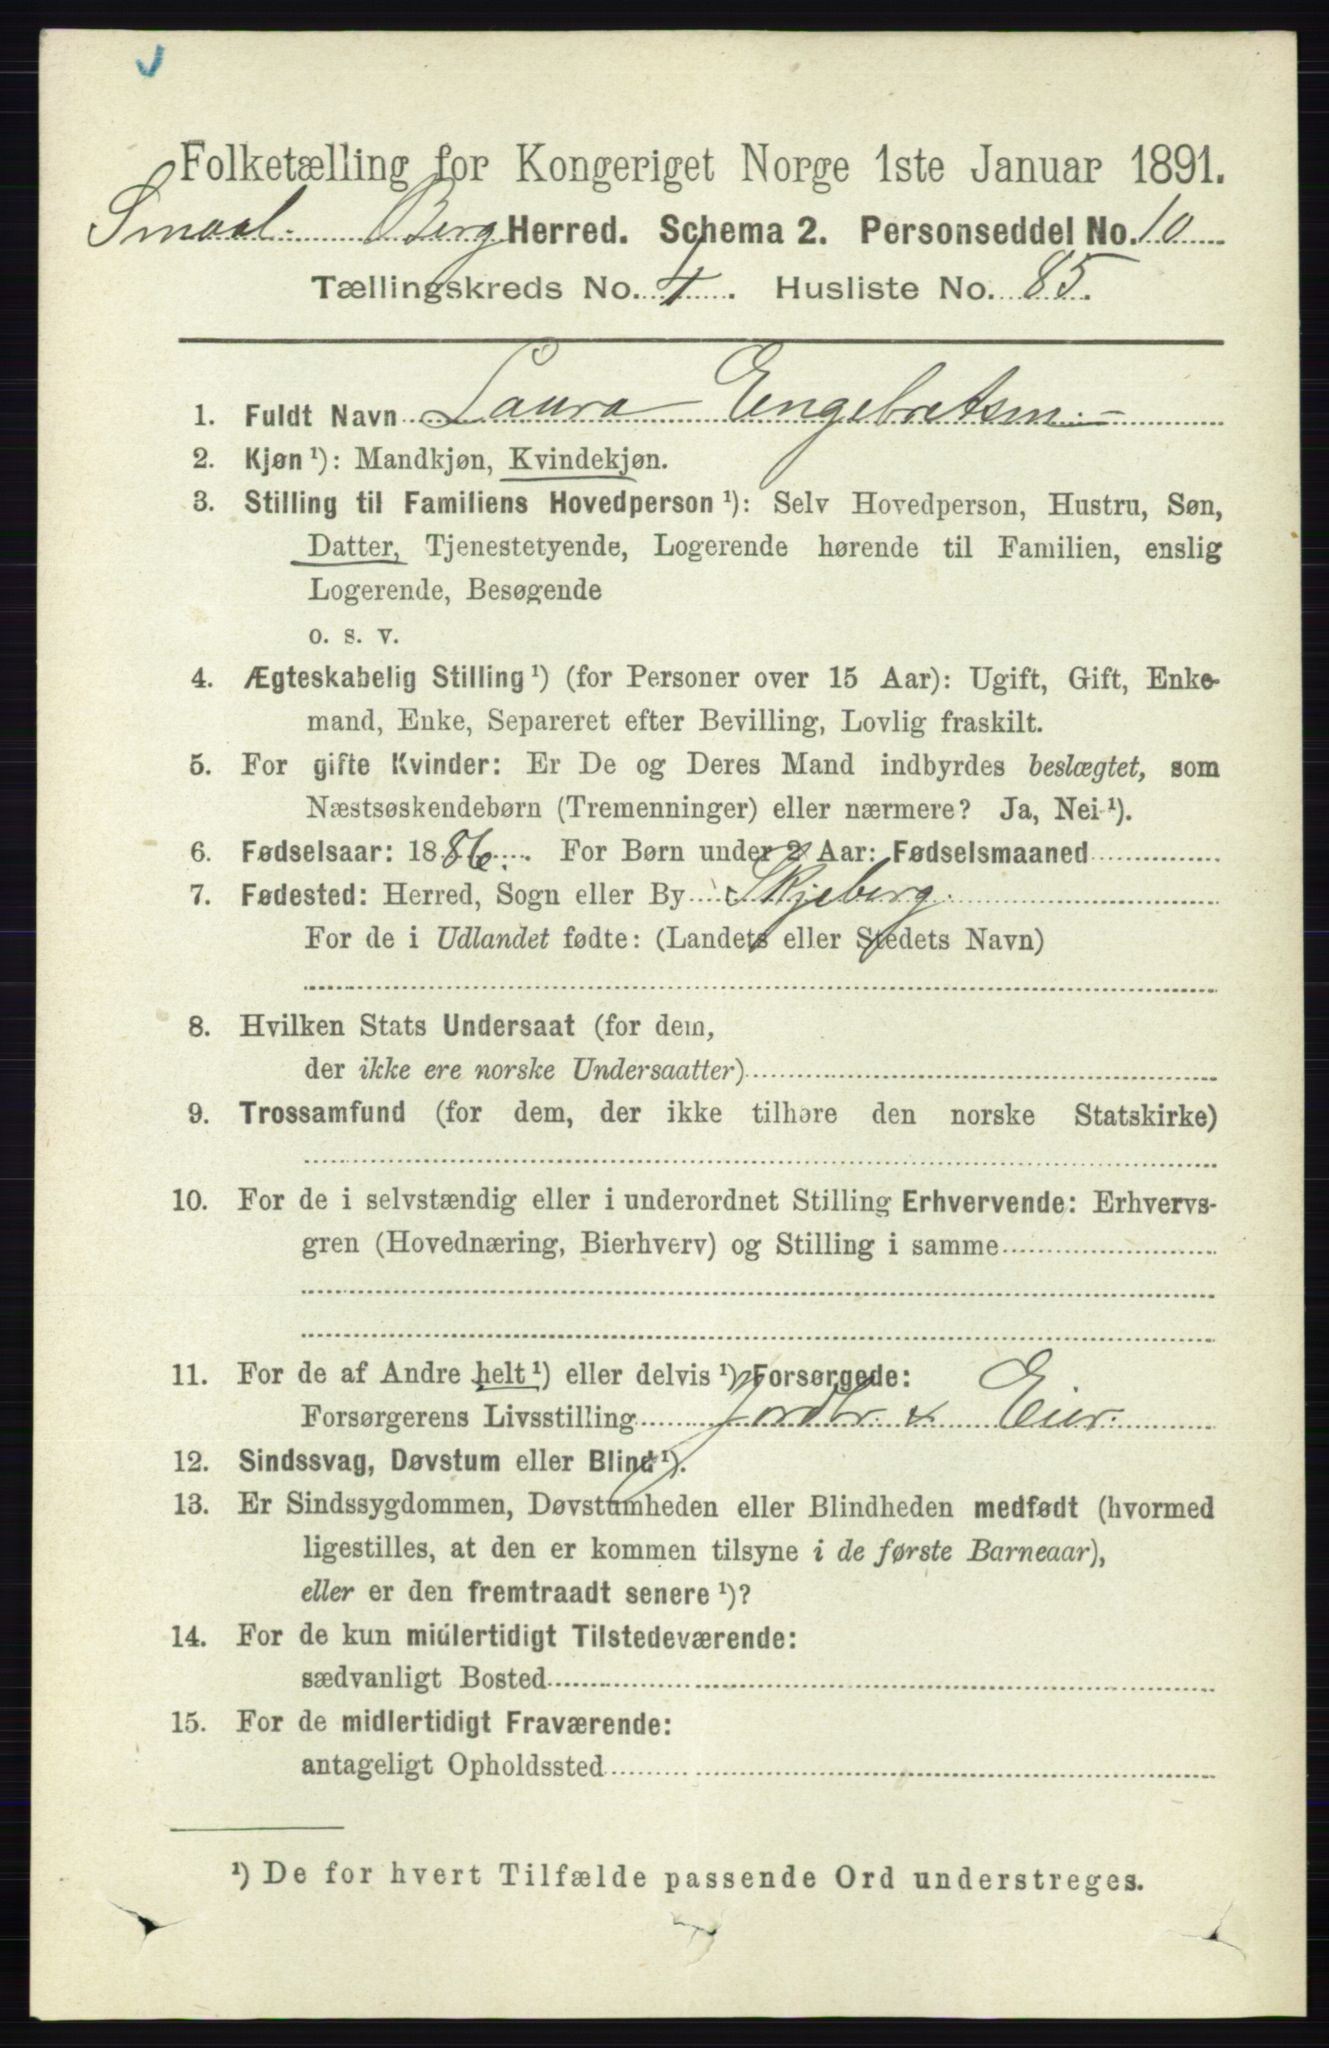 Folketælling for Kongeriget Norge 1ste Januar 1891.
Smaal. Berg Herred. Schema 2. Personseddel No. 10
Tællingskreds No. 4. Husliste No. 85.
1. Fuldt Navn Laura Engebretsen
2. Kjøn ¹): Mandkjøn, Kvindekjøn.
3. Stilling til Familiens Hovedperson ¹): Selv Hovedperson, Hustru, Søn,
Datter, Tjenestetyende, Logerende hørende til Familien, enslig
Logerende, Besøgende
o. s. v.
4. Ægteskabelig Stilling ¹) (for Personer over 15 Aar): Ugift, Gift, Enke-
mand, Enke, Separeret efter Bevilling, Lovlig fraskilt.
5. For gifte Kvinder: Er De og Deres Mand indbyrdes beslægtet, som
Næstsøskendebørn (Tremenninger) eller nærmere? Ja, Nei ¹).
6. Fødselsaar: 1886. For Børn under 2 Aar: Fødselsmaaned
7. Fødested: Herred, Sogn eller By Skjeberg.
For de i Udlandet fødte: (Landets eller Stedets Navn)
8. Hvilken Stats Undersaat (for dem,
der ikke ere norske Undersaatter)
9. Trossamfund (for dem, der ikke tilhøre den norske Statskirke)
10. For de i selvstændig eller i underordnet Stilling Erhvervende: Erhvervs-
gren (Hovednæring, Bierhverv) og Stilling i samme
11. For de af Andre helt ¹) eller delvis ¹) Forsørgede:
Forsørgerens Livsstilling Jordbr. & Eier.
12. Sindssvag, Døvstum eller Blind ¹).
13. Er Sindssygdommen, Døvstumheden eller Blindheden medfødt (hvormed
ligestilles, at den er kommen tilsyne i de første Barneaar),
eller er den fremtraadt senere ¹)?
14. For de kun midlertidigt Tilstedeværende:
sædvanligt Bosted
15. For de midlertidigt Fraværende:
antageligt Opholdssted
¹) De for hvert Tilfælde passende Ord understreges.